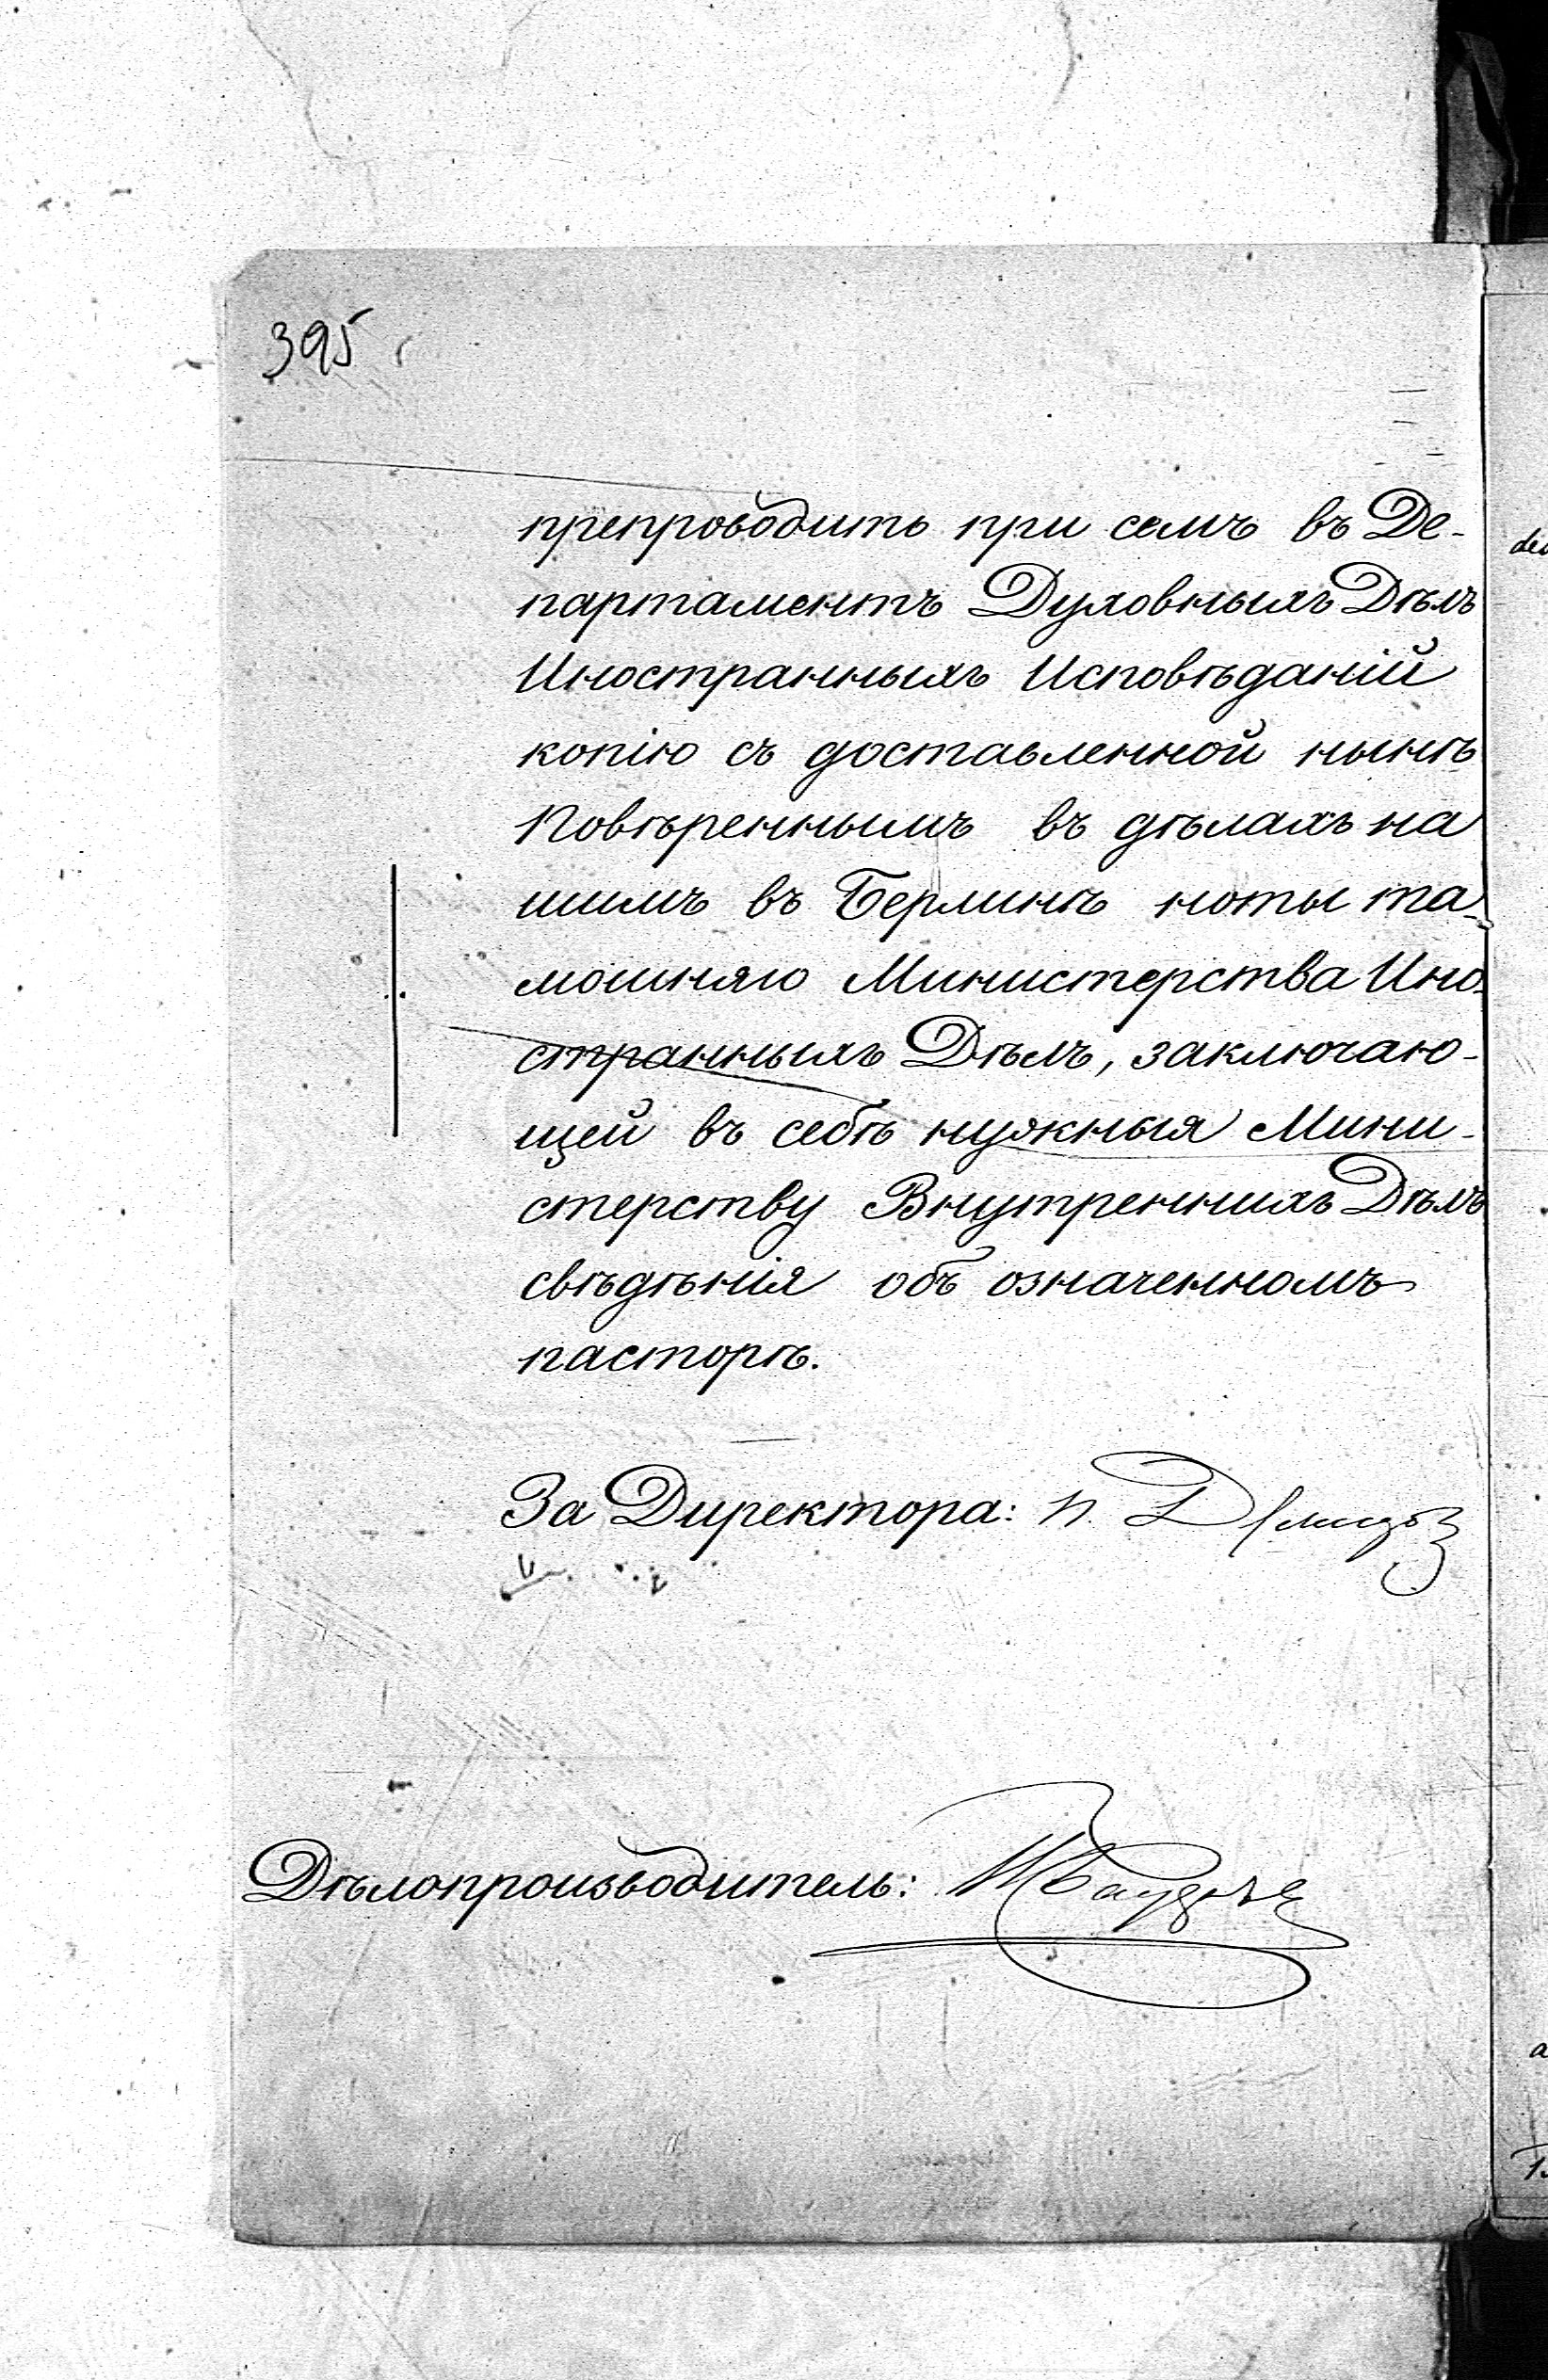 395
препроводить при семъ въ Де-
партаментъ Духовныхъ Дѣлъ
Иностранныхъ Исповѣданій
копію съ доставленной нынѣ
Повѣреннымъ въ дѣлахъ на
шимъ въ Берлинѣ ноты та-
мошняго Министерства Ино-
странныхъ Дѣлъ, заключаю-
щей въ себѣ нужныя Мини-
стерству Внутреннихъ Дѣлъ
свѣдѣнія объ означенномъ
пасторѣ.
За Директора: П.
Дѣлопроизводитель: